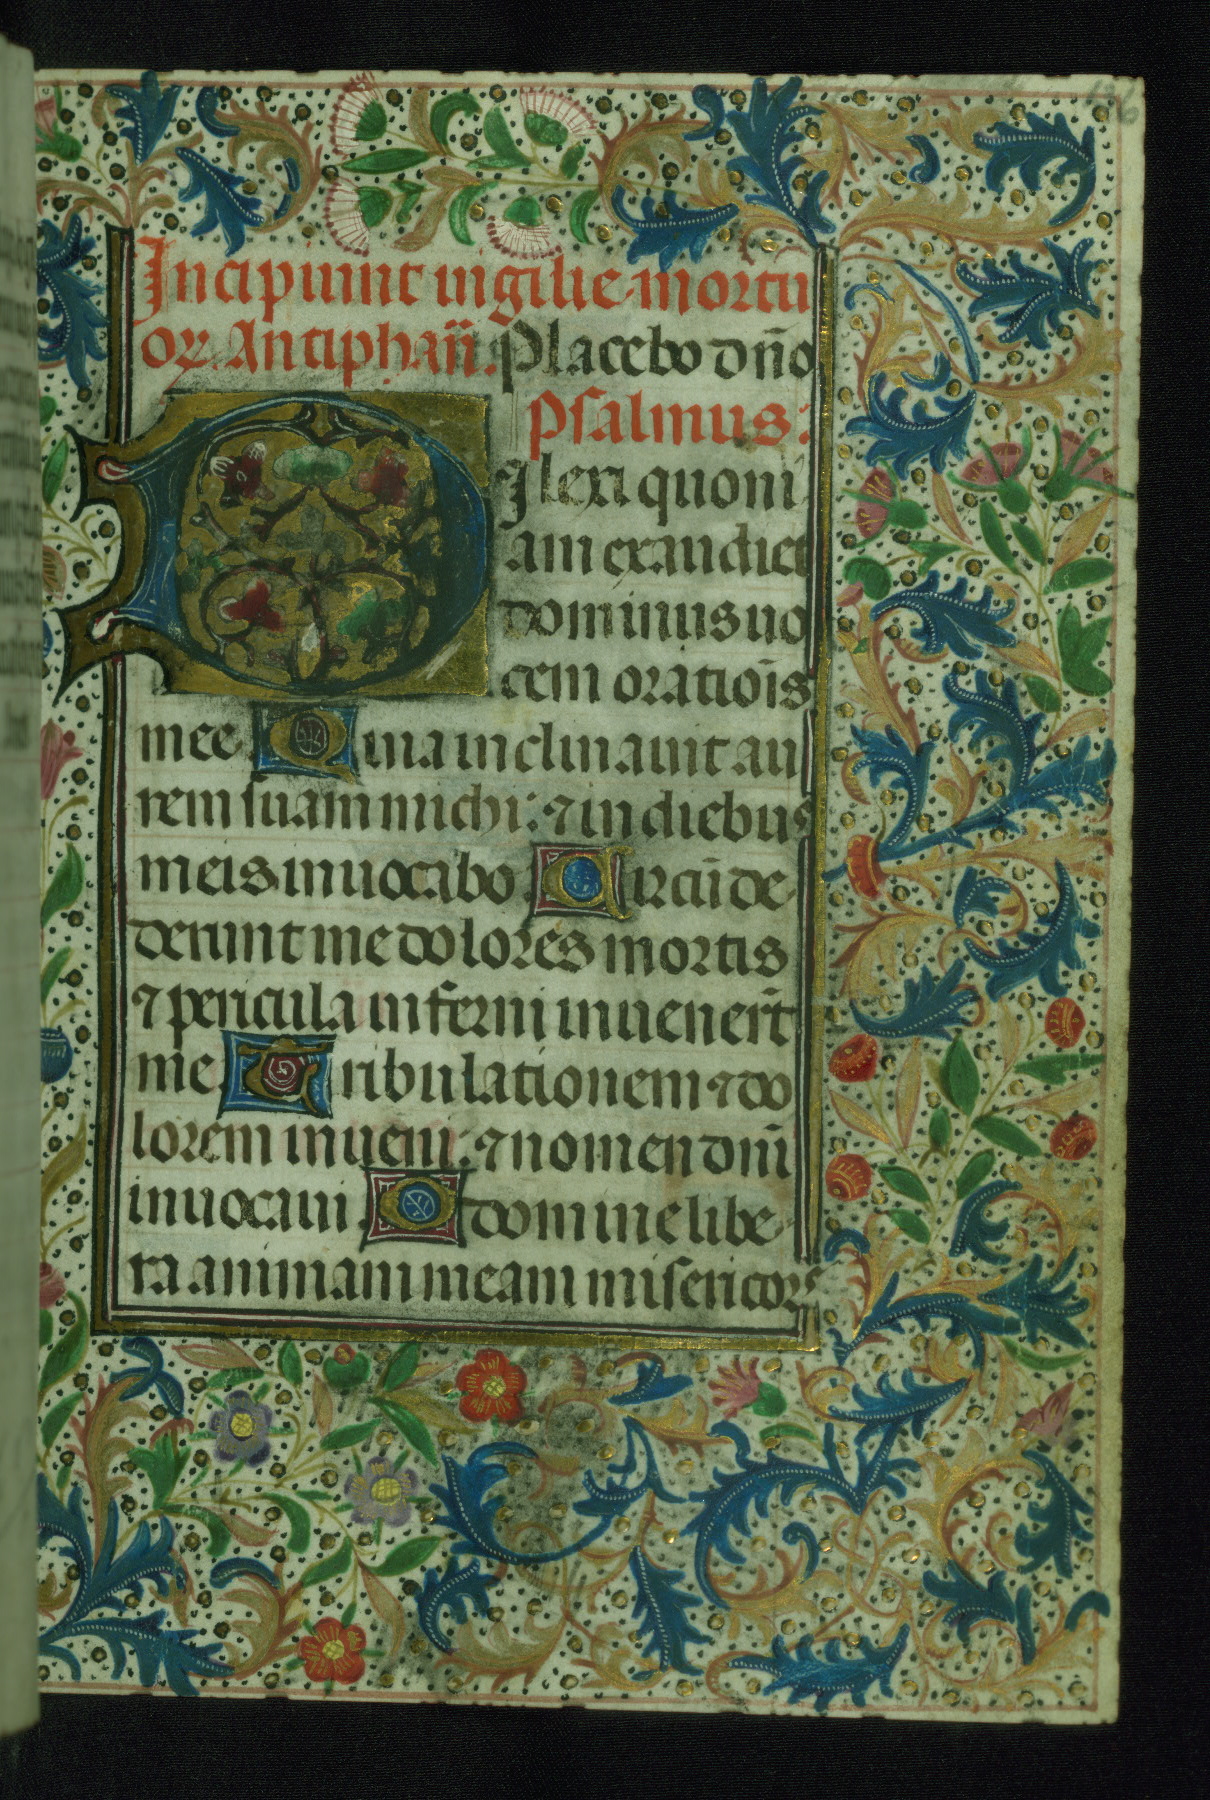 Incipiunt uigilie mortu
oꝝ. Antiphañ. Placebo dño
Psalmus:
DIlexi quoni
am exaudiet
dominus uo
cem oratiōis
mee Quia inclinauit au
rem suam michi: ⁊ in diebus
meis inuocabo Circūde
derunt me dolores mortis
⁊ pericula inferni inuenert̄
me Tribulationem ⁊ do
lorem inueni: ⁊ nomen dñi
inuocaui O domine libe
ra animam meam misericors